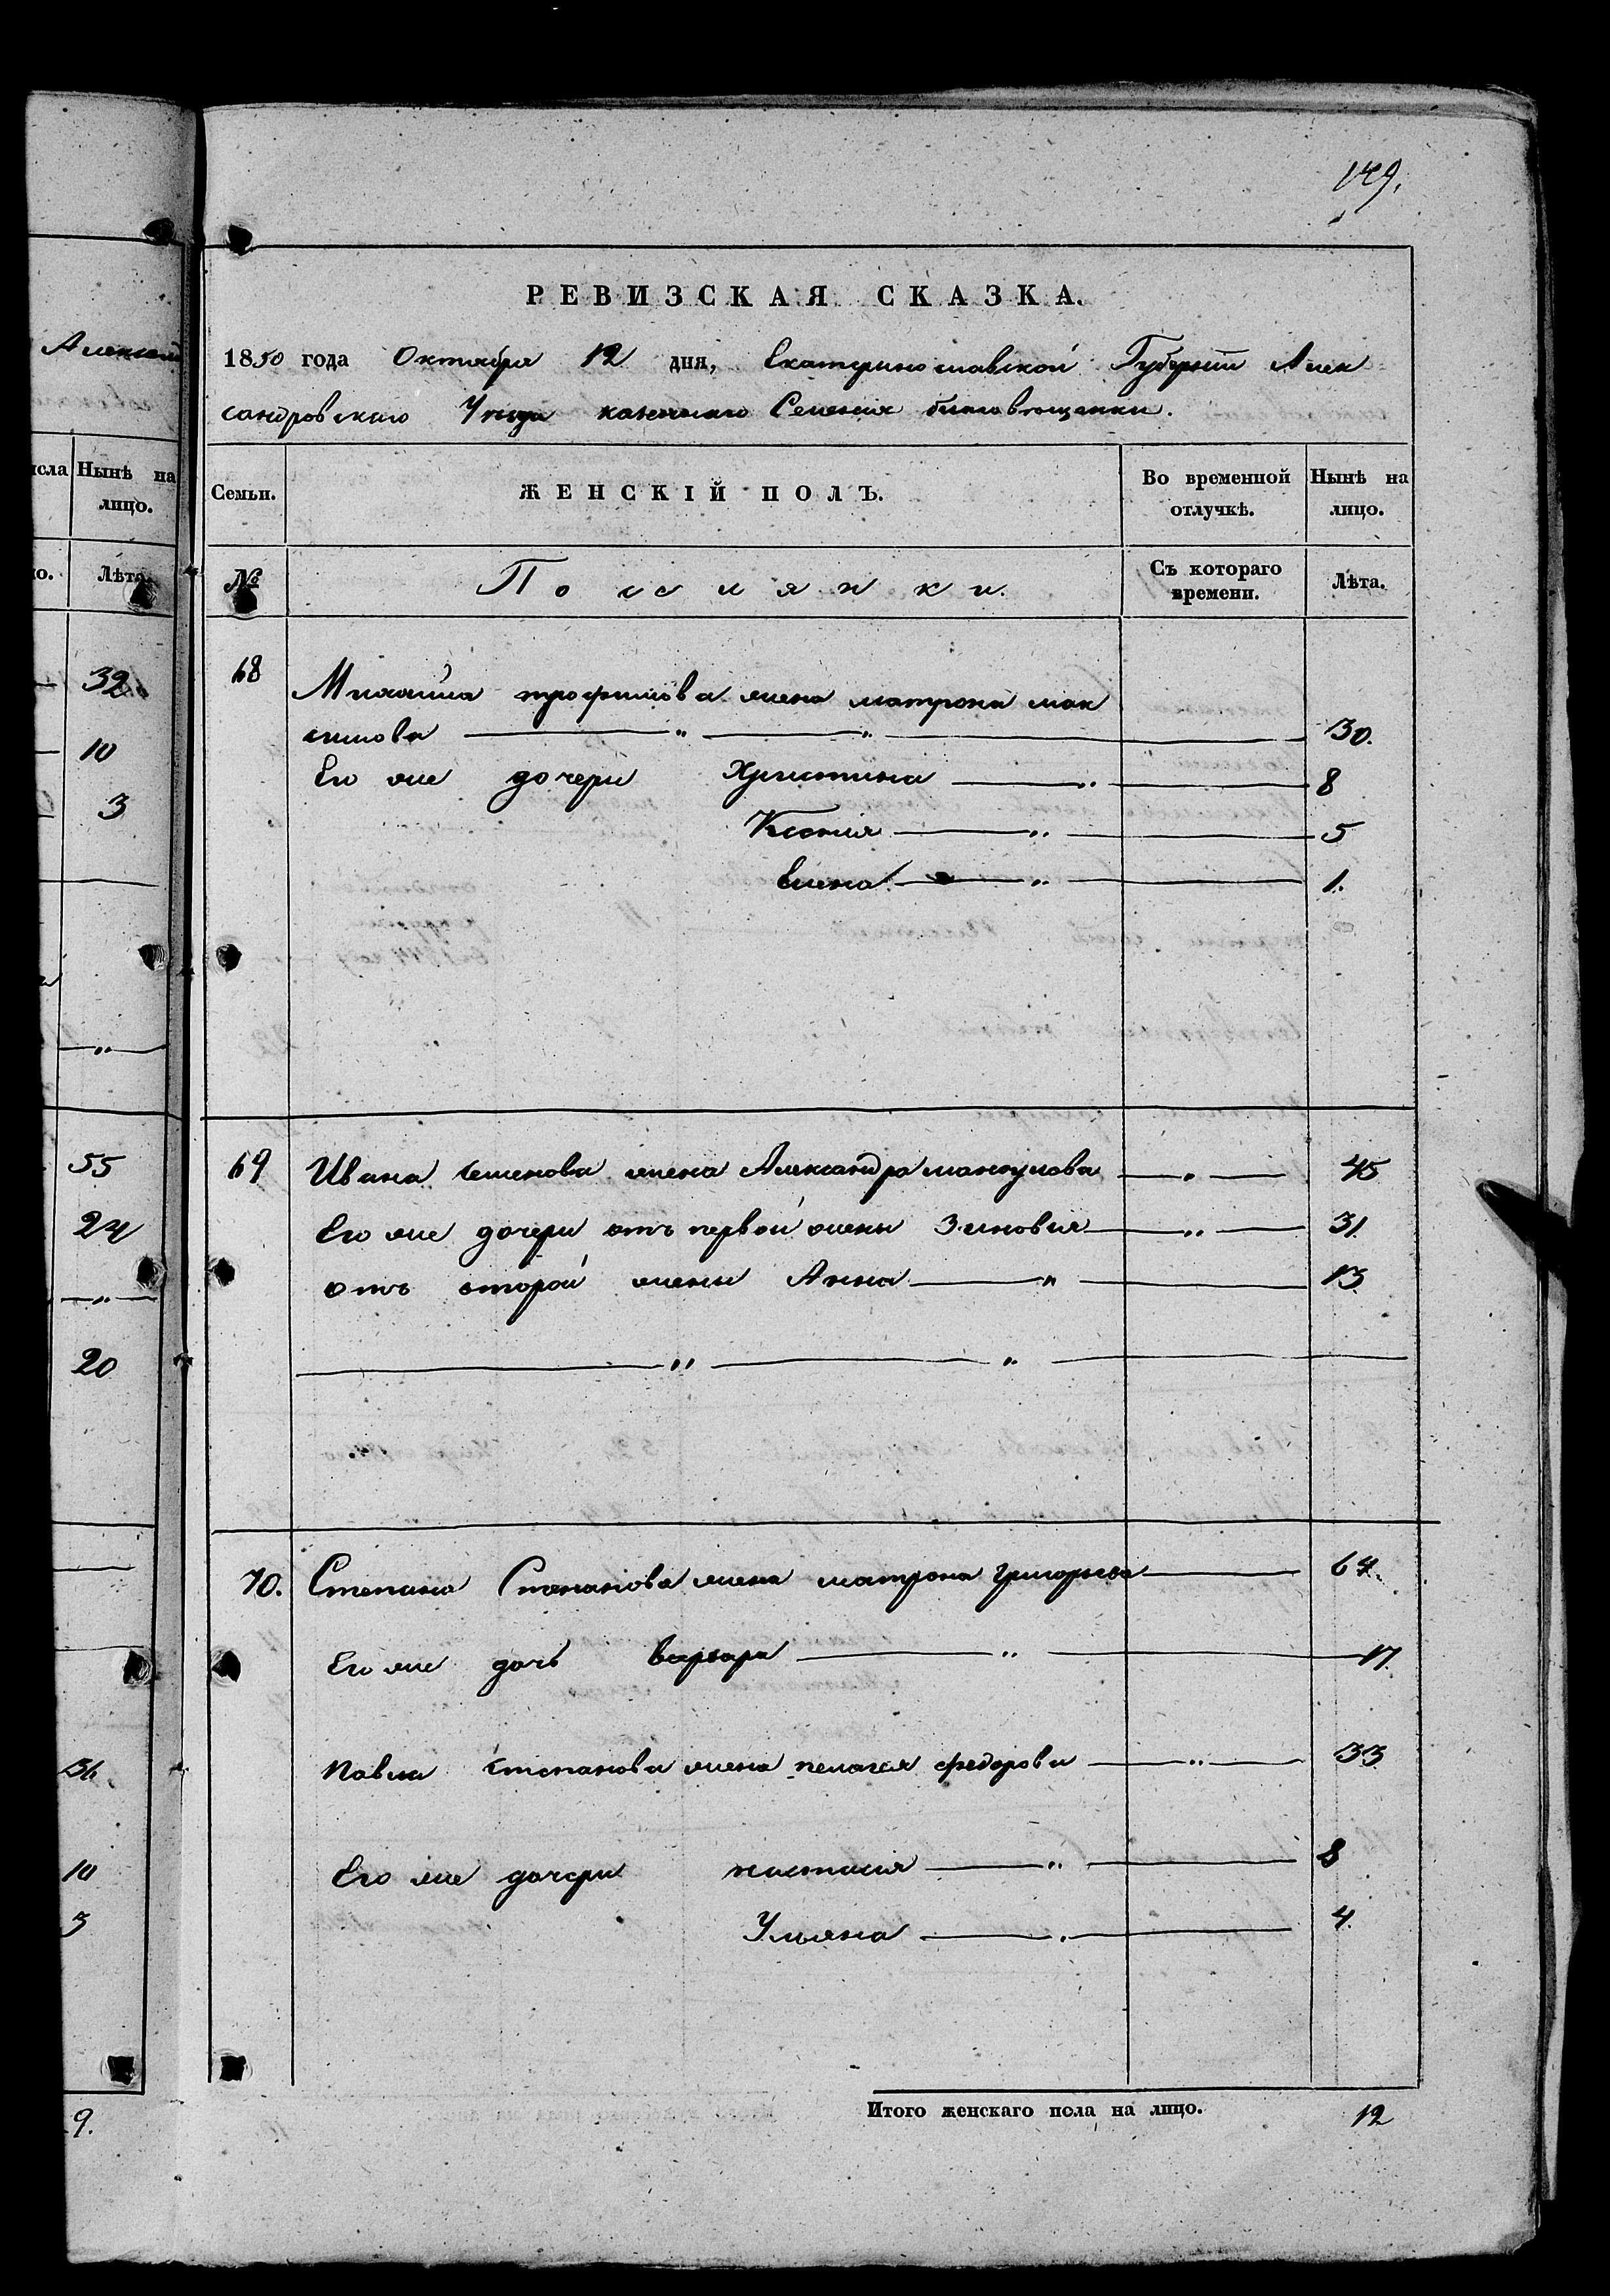 Александ
исла
Нынѣ на
лицо.
ло.
Лѣта.
32
10
3
55
24
20
36
10
3
9.
149.
РЕВИЗСКАЯ СКАЗКА.
1850 года Октября 12 дня, Екатеринославской Губерніи Алек
сандровскаго Уѣзда казеннаго Селенія благовѣщенки.
Семьи.
ЖЕНСКІЙ ПОЛЪ.
Во временной
отлучкѣ.
Нынѣ на
лицо.
№
Поселянки.
Съ котораго
времени.
Лѣта.
68 Михайла трофимова жена матрона мак
симова — „ — „ — 30.
Его же дочери Христина — „ — 8
Ксенія — „ — 5
елена — „ — 1.
69 Ивана семенова жена Александра мануилова — „ — 45
Его же дочери отъ первой жены Зиновия — „ — 31
отъ второй жены Анна — „ — 13
— „ — „ —
70. Степана Степанова жена матрона григорьева — 64.
Его же дочь варвара — „ — 17.
Павла степанова жена пелагея федорова — „ — 33
Его же дочери настасия — „ — 8
Ульяна — „ — 4.
Итого женскаго пола на лицо. 12